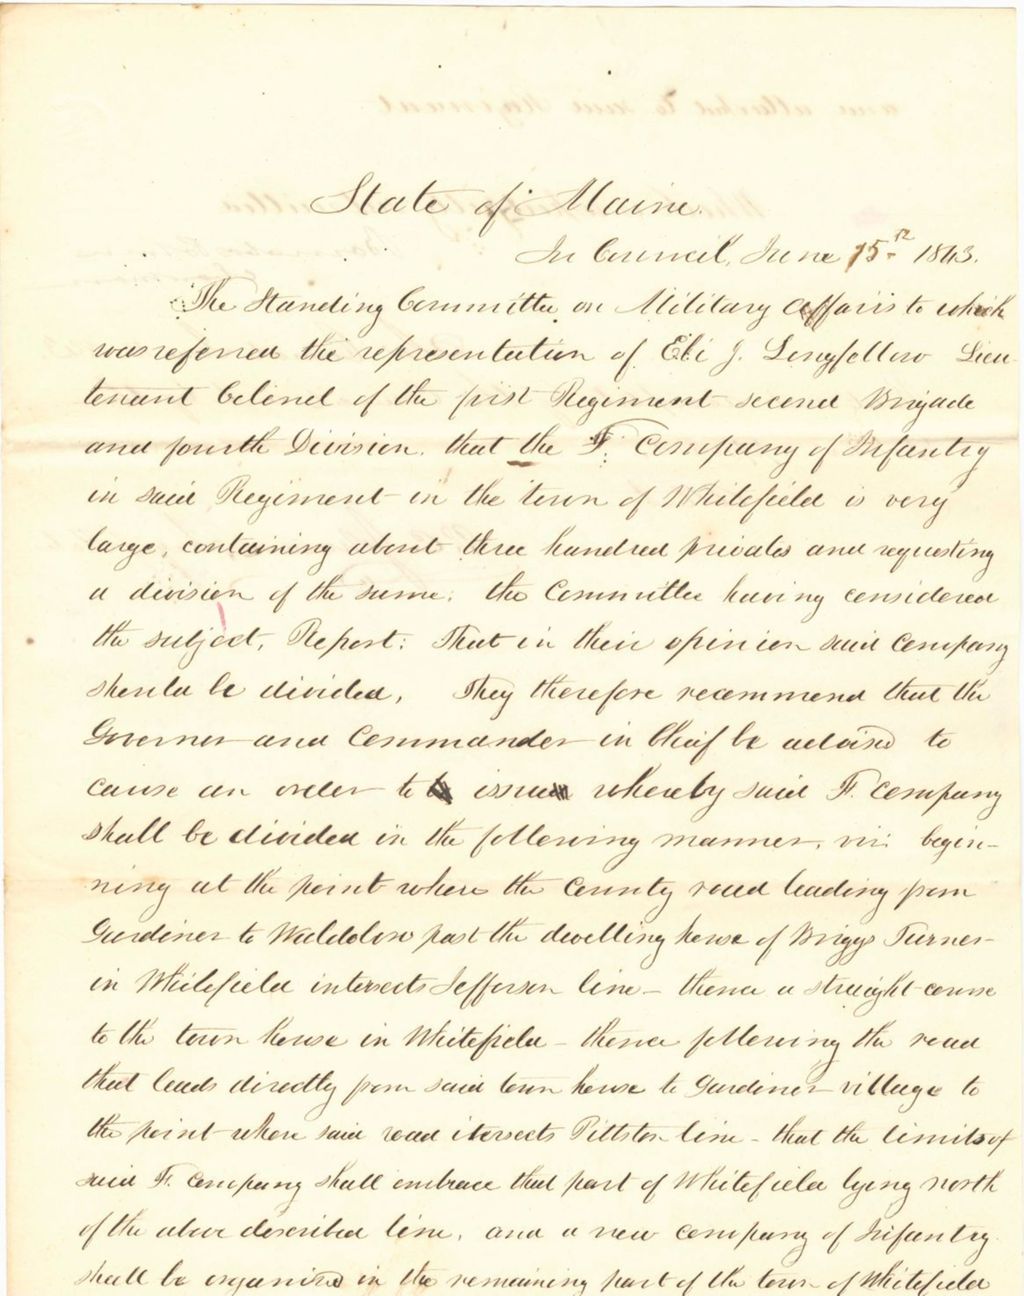 State of Maine.
In Council, June 15th 1843.
The Standing Committee on Military affairs to which
was referred the representation of Eli J. Longfellow Lieu-
tenant Colonel of the first Regiment second Brigade
and fourth Division, that the F. Company of Infantry
in said Regiment in the town of Whitefield is very
large, containing about three hundred privates and requesting
a division of the same; the Committee having considered
the subject, Report: That in their opinion said company
should be divided. They therefore recommend that the
Governor and Commander in Chief be advised to
cause an order to issue whereby said F. company
shall be divided in the following manner, viz: begin-
ning at the point where the county road leading from
Gardiner to Waldoboro past the dwelling house of Briggs Turner
in Whitefield intersects Jefferson line - thence a straight course
to the town house in Whitefield - thence following the road
that leads directly from said town house to Gardiner village to
the point where said road itersects Pittston line - that the limits of
said F. company shall embrace that part of Whitefield lying north
of the above described line, and a new company of Infantry
shall be organized in the remaining part of the town of Whitefield